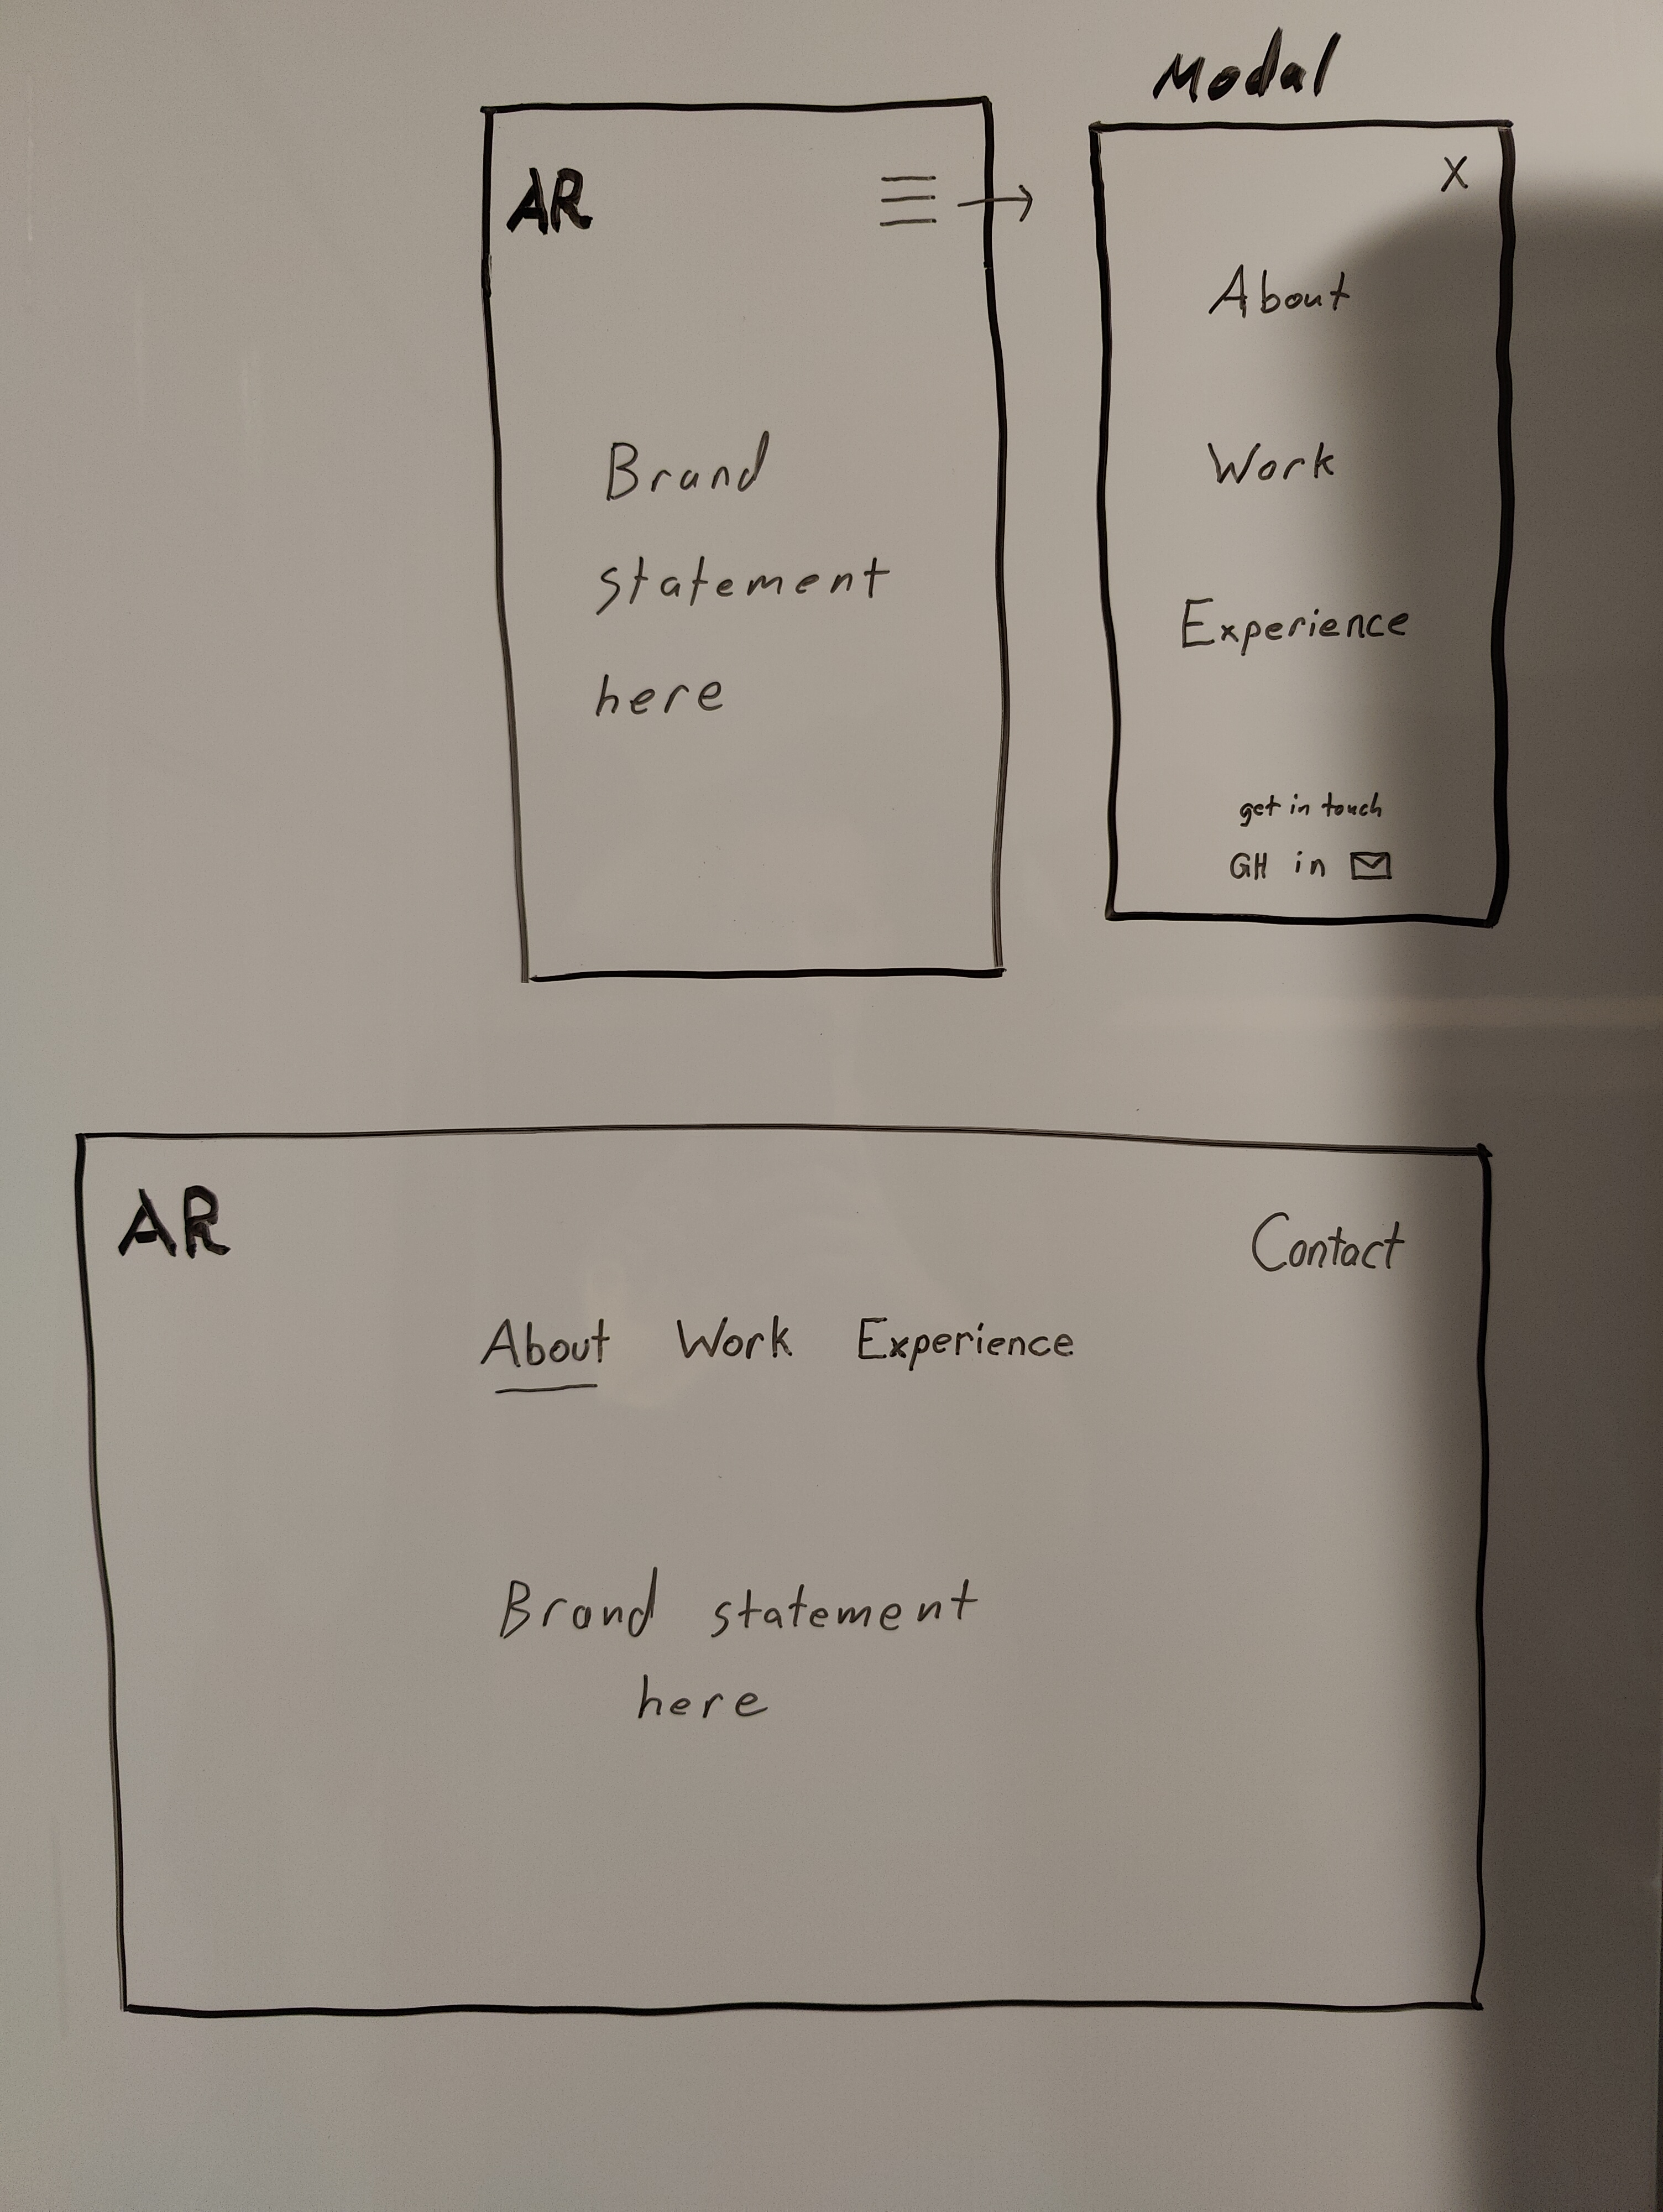 AR
Brand
statement
here
Modal
X
About
Work
Experience
get in touch
GH in
AR
Contact
About Work Experience
Brand statement
here